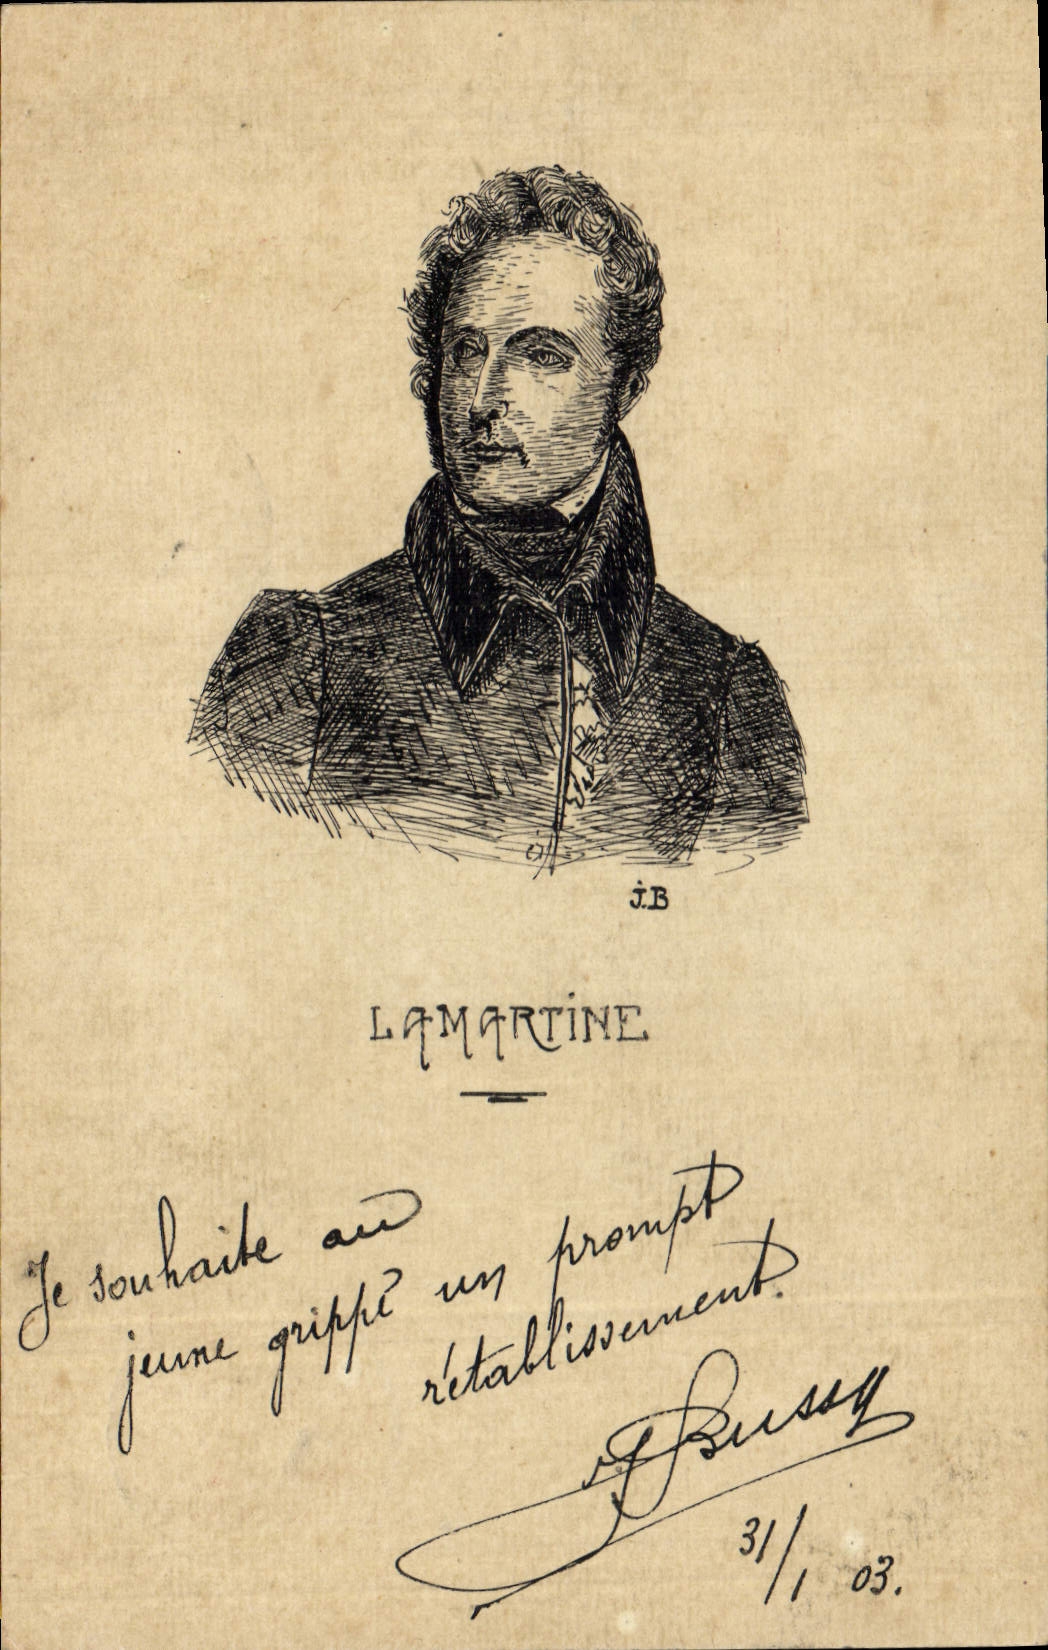 J.B
LAMARTINE
Je souhaite au
jeune grippé un prompt
rétablissement.
Bussy
31/1 03.